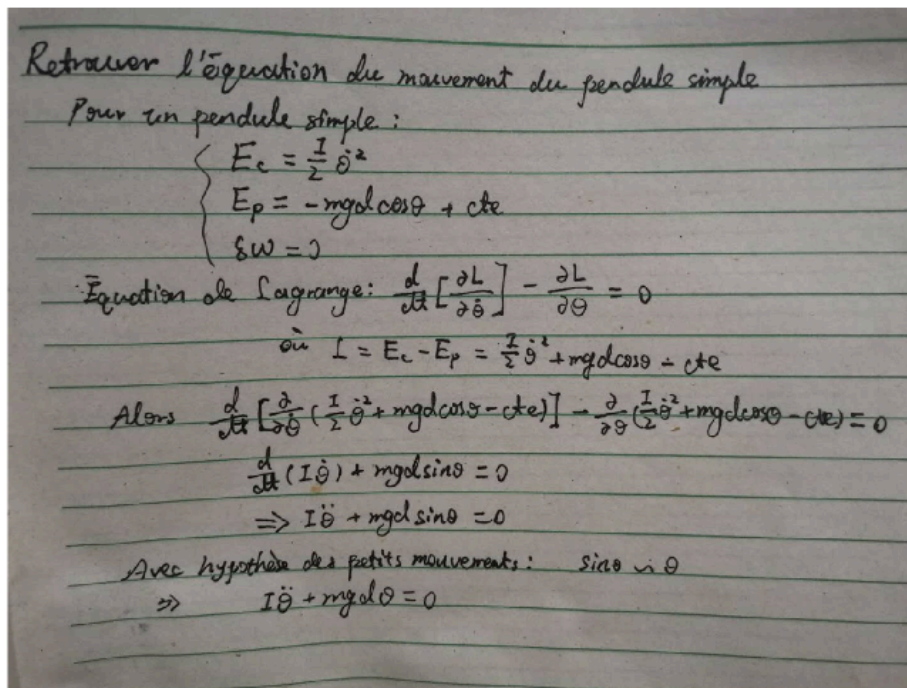 Retrouver l'équation du mouvement du pendule simple
Pour un pendule simple :
E_c = I/2 θ̇²
E_p = -mgd cosθ + cte
δW = 0
Équation de Lagrange: d/dt [∂L/∂θ̇] - ∂L/∂θ = 0
où L = E_c - E_p = I/2 θ̇² + mgd cosθ - cte
Alors d/dt [∂/∂θ̇ (I/2 θ̇² + mgd cosθ - cte)] - ∂/∂θ (I/2 θ̇² + mgd cosθ - cte) = 0
d/dt (Iθ̇) + mgd sinθ = 0
=> Iθ̈ + mgd sinθ = 0
Avec hypothèse des petits mouvements: sinθ ∽ θ
=> Iθ̈ + mgdθ = 0